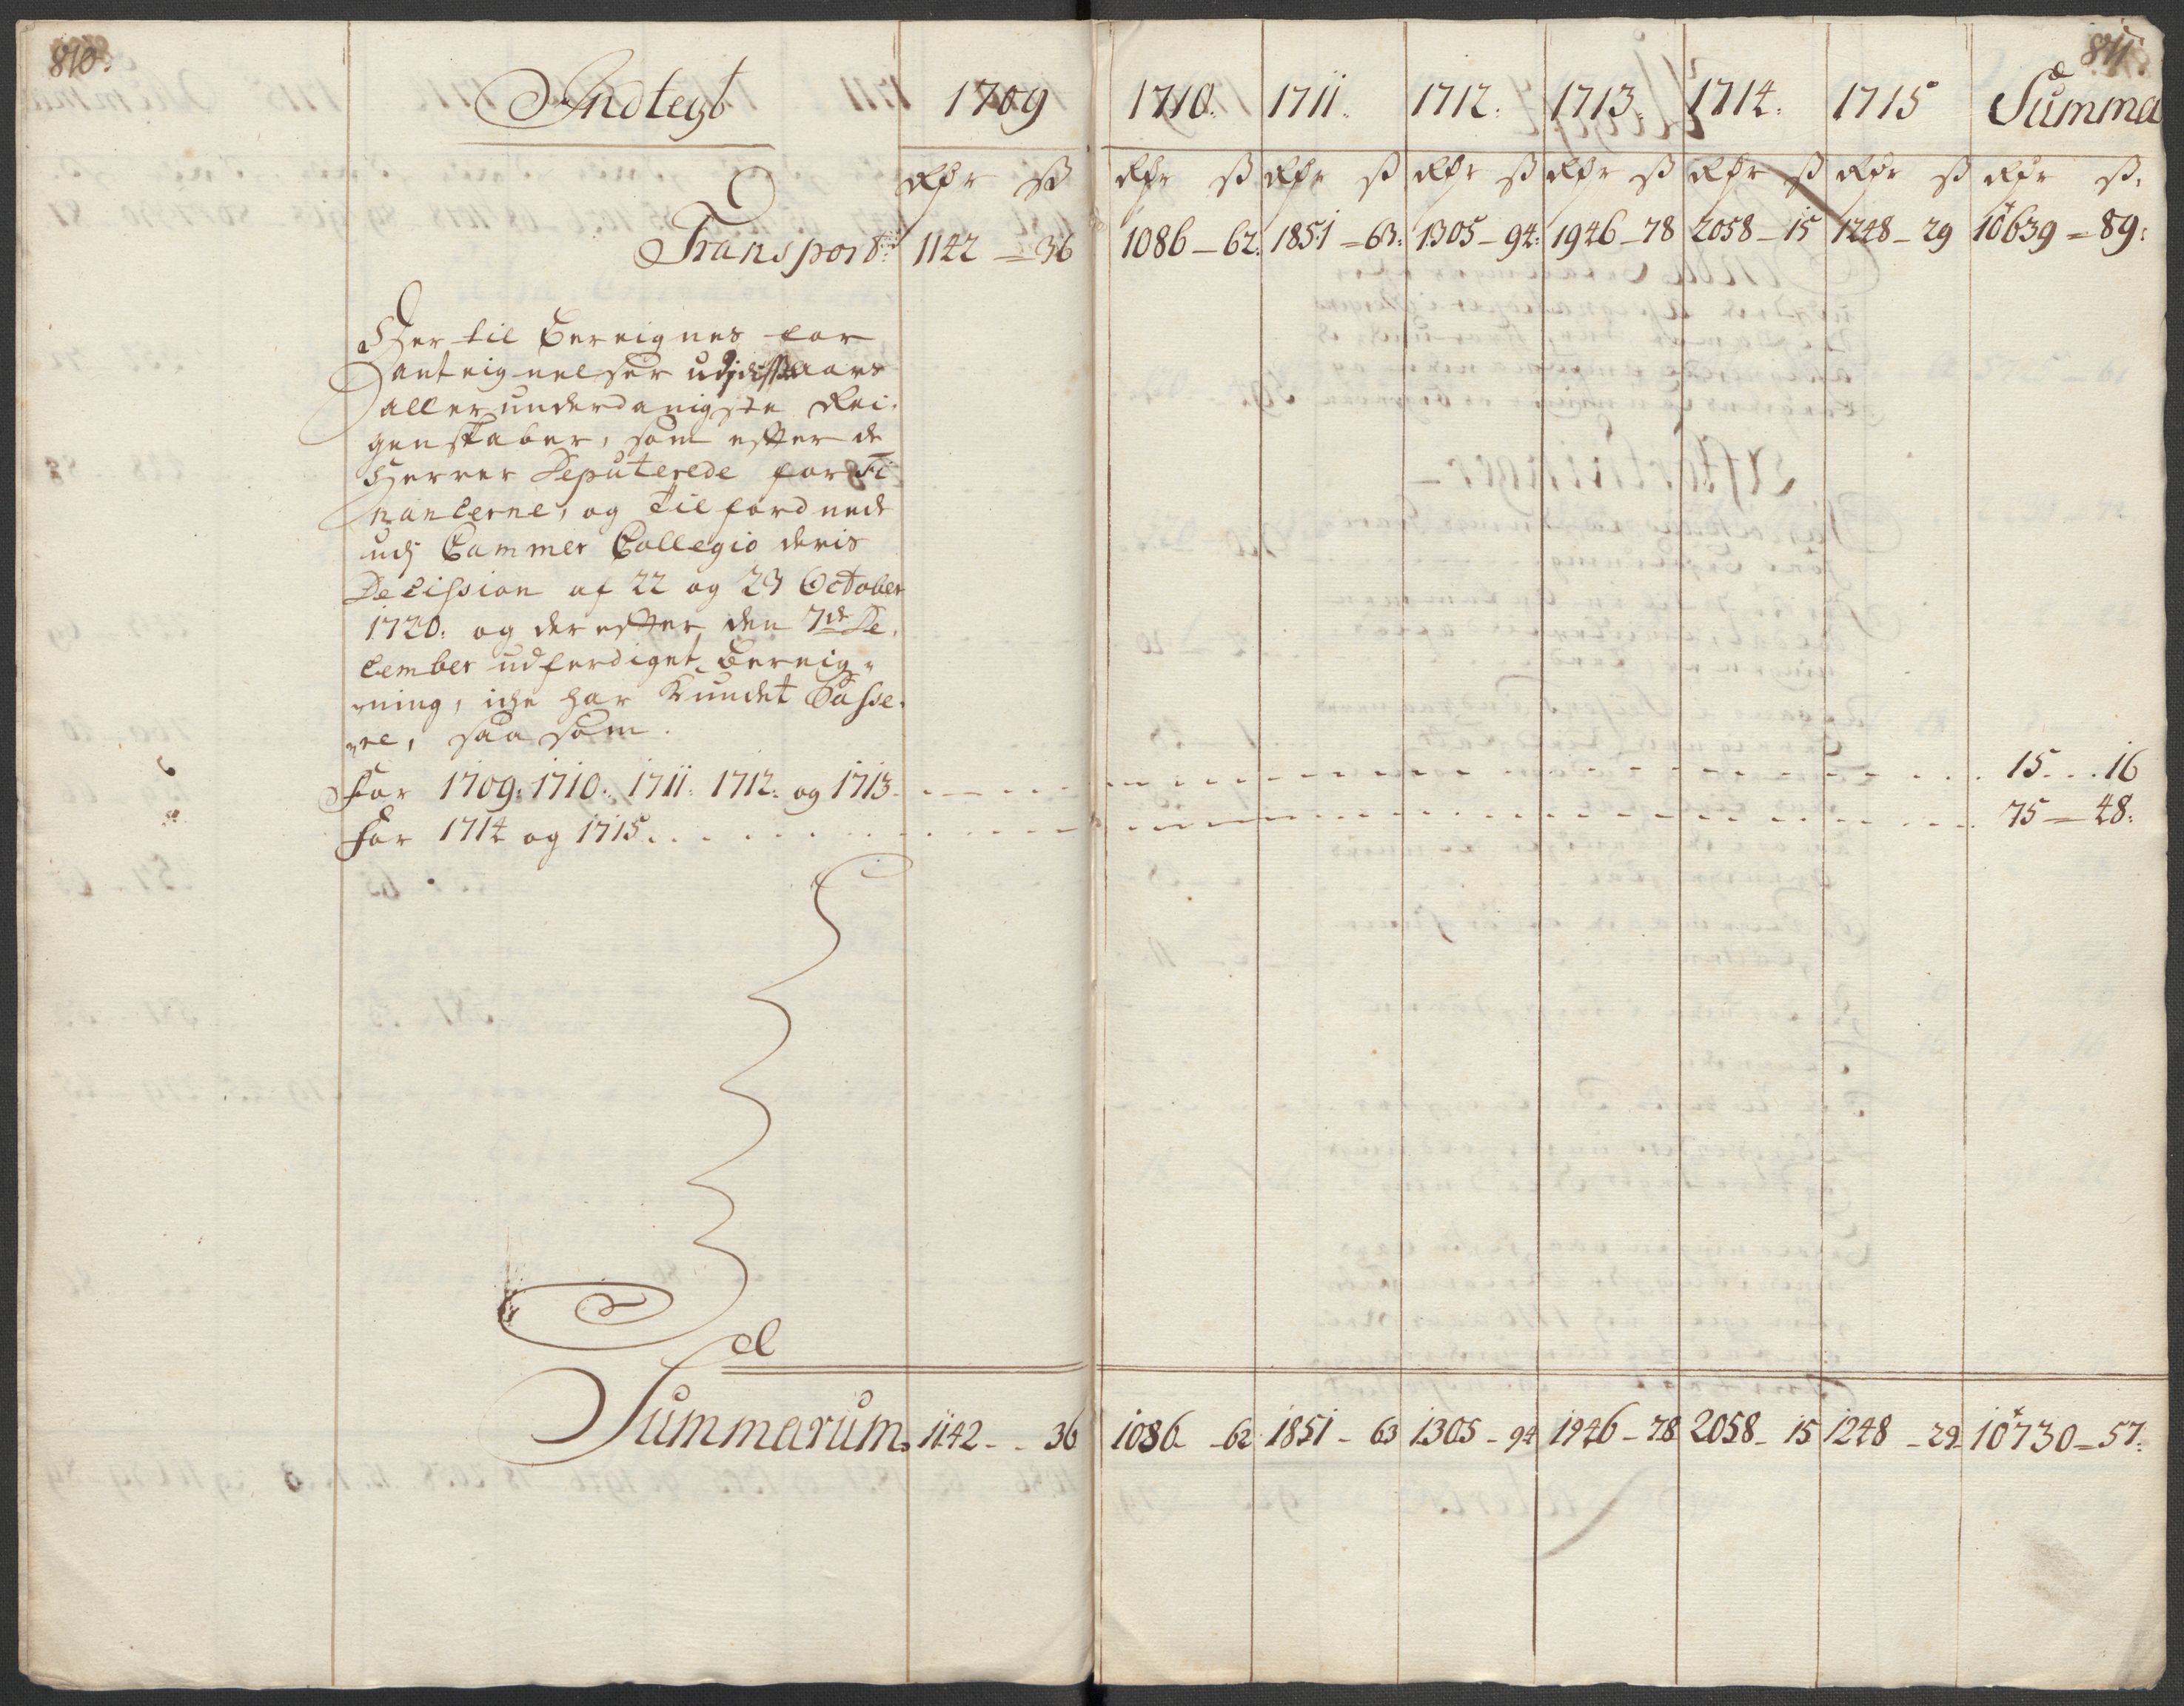 810.
811.
Indtegt 1709 1710. 1711. 1712. 1713. 1714. 1715 Summa
Rdr ß Rdr ß Rdr ß Rdr ß Rdr ß Rdr ß Rdr ß Rdr ß
Transport: 1142 = 36 1086 – 62. 1851 = 63: 1305 – 94: 1946 – 78 2058 – 15 1248 – 29 10639 = 89:
Her til bereignes for
anteignelser udj disse aars
allerunderdanigste Rei.
genskaber, som efter de
Herrer Deputerede for Fi
nancerne, og Tilfordnede
udj Cammer Collegio deris
Decission af 22 og 23 October
1720: og der efter den 7de De.
cember udferdiget bereig„
ning, iche har kundet Passe.
re, saa som.
For 1709. 1710. 1711. 1712. og 1713. 15 . . . 16
For 1714 og 1715. 75 = 48:
Summarum. 1142 – 36 1086 – 62 1851 – 63 1305 – 94 1946 – 78 2058 – 15 1248 – 29 10730 = 57: